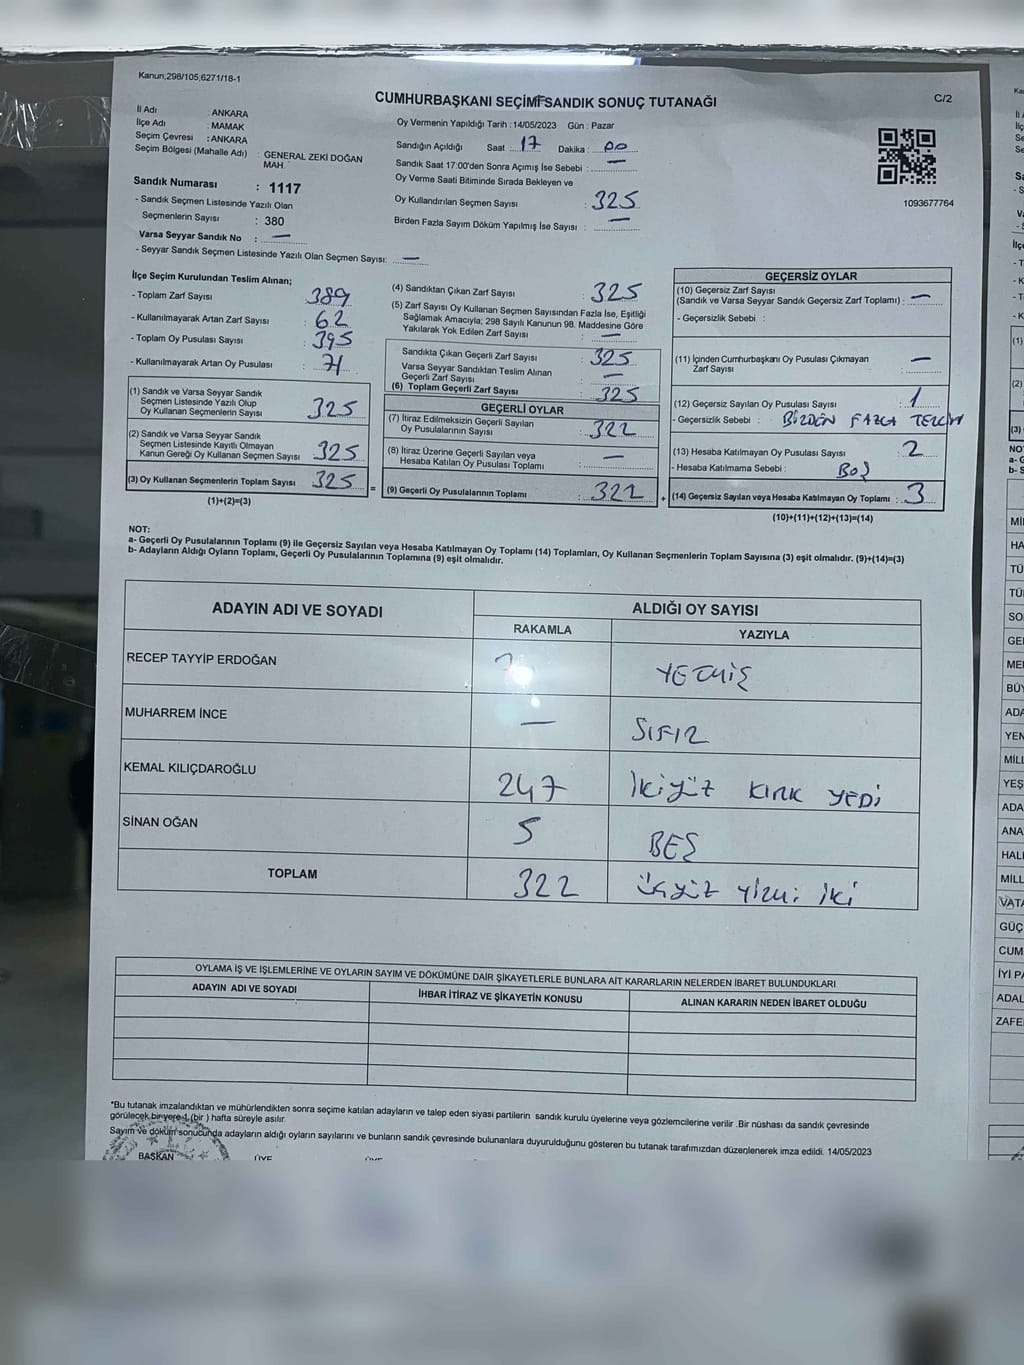 Kanun,298/105,6271/18-1
CUMHURBAŞKANI SEÇİMİ SANDIK SONUÇ TUTANAĞI
C/2
İl Adı : ANKARA
İlçe Adı : MAMAK
Seçim Çevresi : ANKARA
Seçim Bölgesi (Mahalle Adı) : GENERAL ZEKİ DOĞAN
MAH.
Sandık Numarası : 1117
- Sandık Seçmen Listesinde Yazılı Olan
Seçmenlerin Sayısı : 380
Varsa Seyyar Sandık No : —
- Seyyar Sandık Seçmen Listesinde Yazılı Olan Seçmen Sayısı: —
Oy Vermenin Yapıldığı Tarih : 14/05/2023 Gün : Pazar
Sandığın Açıldığı Saat : 17 Dakika : 00
Sandık Saat 17:00'den Sonra Açımış İse Sebebi : —
Oy Verme Saati Bitiminde Sırada Bekleyen ve
Oy Kullandırılan Seçmen Sayısı : 325
Birden Fazla Sayım Döküm Yapılmış İse Sayısı : —
1093677764
İlçe Seçim Kurulundan Teslim Alınan;
- Toplam Zarf Sayısı : 389
- Kullanılmayarak Artan Zarf Sayısı : 62
- Toplam Oy Pusulası Sayısı : 395
- Kullanılmayarak Artan Oy Pusulası : 71
(1) Sandık ve Varsa Seyyar Sandık
Seçmen Listesinde Yazılı Olup
Oy Kullanan Seçmenlerin Sayısı : 325
(2) Sandık ve Varsa Seyyar Sandık
Seçmen Listesinde Kayıtlı Olmayan
Kanun Gereği Oy Kullanan Seçmen Sayısı : 325
(3) Oy Kullanan Seçmenlerin Toplam Sayısı : 325
(1)+(2)=(3)
(4) Sandıktan Çıkan Zarf Sayısı : 325
(5) Zarf Sayısı Oy Kullanan Seçmen Sayısından Fazla İse, Eşitliği
Sağlamak Amacıyla; 298 Sayılı Kanunun 98. Maddesine Göre
Yakılarak Yok Edilen Zarf Sayısı : —
Sandıkta Çıkan Geçerli Zarf Sayısı : 325
Varsa Seyyar Sandıktan Teslim Alınan
Geçerli Zarf Sayısı : —
(6) Toplam Geçerli Zarf Sayısı : 325
GEÇERLİ OYLAR
(7) İtiraz Edilmeksizin Geçerli Sayılan
Oy Pusulalarının Sayısı : 322
(8) İtiraz Üzerine Geçerli Sayılan veya
Hesaba Katılan Oy Pusulası Toplamı : —
= (9) Geçerli Oy Pusulalarının Toplamı : 322
GEÇERSİZ OYLAR
(10) Geçersiz Zarf Sayısı
(Sandık ve Varsa Seyyar Sandık Geçersiz Zarf Toplamı) : —
- Geçersizlik Sebebi :
(11) İçinden Cumhurbaşkanı Oy Pusulası Çıkmayan
Zarf Sayısı : —
(12) Geçersiz Sayılan Oy Pusulası Sayısı : 1
- Geçersizlik Sebebi : BİRDEN FAZLA TERCİH
(13) Hesaba Katılmayan Oy Pusulası Sayısı : 2
- Hesaba Katılmama Sebebi : BOŞ
+ (14) Geçersiz Sayılan veya Hesaba Katılmayan Oy Toplamı : 3
(10)+(11)+(12)+(13)=(14)
NOT:
a- Geçerli Oy Pusulalarının Toplamı (9) ile Geçersiz Sayılan veya Hesaba Katılmayan Oy Toplamı (14) Toplamları, Oy Kullanan Seçmenlerin Toplam Sayısına (3) eşit olmalıdır. (9)+(14)=(3)
b- Adayların Aldığı Oyların Toplamı, Geçerli Oy Pusulalarının Toplamına (9) eşit olmalıdır.
ADAYIN ADI VE SOYADI ALDIĞI OY SAYISI
RAKAMLA YAZIYLA
RECEP TAYYİP ERDOĞAN YETMİŞ
MUHARREM İNCE — SIFIR
KEMAL KILIÇDAROĞLU 247 İKİYÜZ KIRK YEDİ
SİNAN OĞAN 5 BEŞ
TOPLAM 322 ÜÇYÜZ YİRMİ İKİ
OYLAMA İŞ VE İŞLEMLERİNE VE OYLARIN SAYIM VE DÖKÜMÜNE DAİR ŞİKAYETLERLE BUNLARA AİT KARARLARIN NELERDEN İBARET BULUNDUKLARI
ADAYIN ADI VE SOYADI İHBAR İTİRAZ VE ŞİKAYETİN KONUSU ALINAN KARARIN NEDEN İBARET OLDUĞU
*Bu tutanak imzalandıktan ve mühürlendikten sonra seçime katılan adayların ve talep eden siyasi partilerin sandık kurulu üyelerine veya gözlemcilerine verilir .Bir nüshası da sandık çevresinde
görülecek bir yere 1 (bir ) hafta süreyle asılır.
Sayım ve döküm sonucunda adayların aldığı oyların sayılarını ve bunların sandık çevresinde bulunanlara duyurulduğunu gösteren bu tutanak tarafımızdan düzenlenerek imza edildi. 14/05/2023
BAŞKAN ÜYE